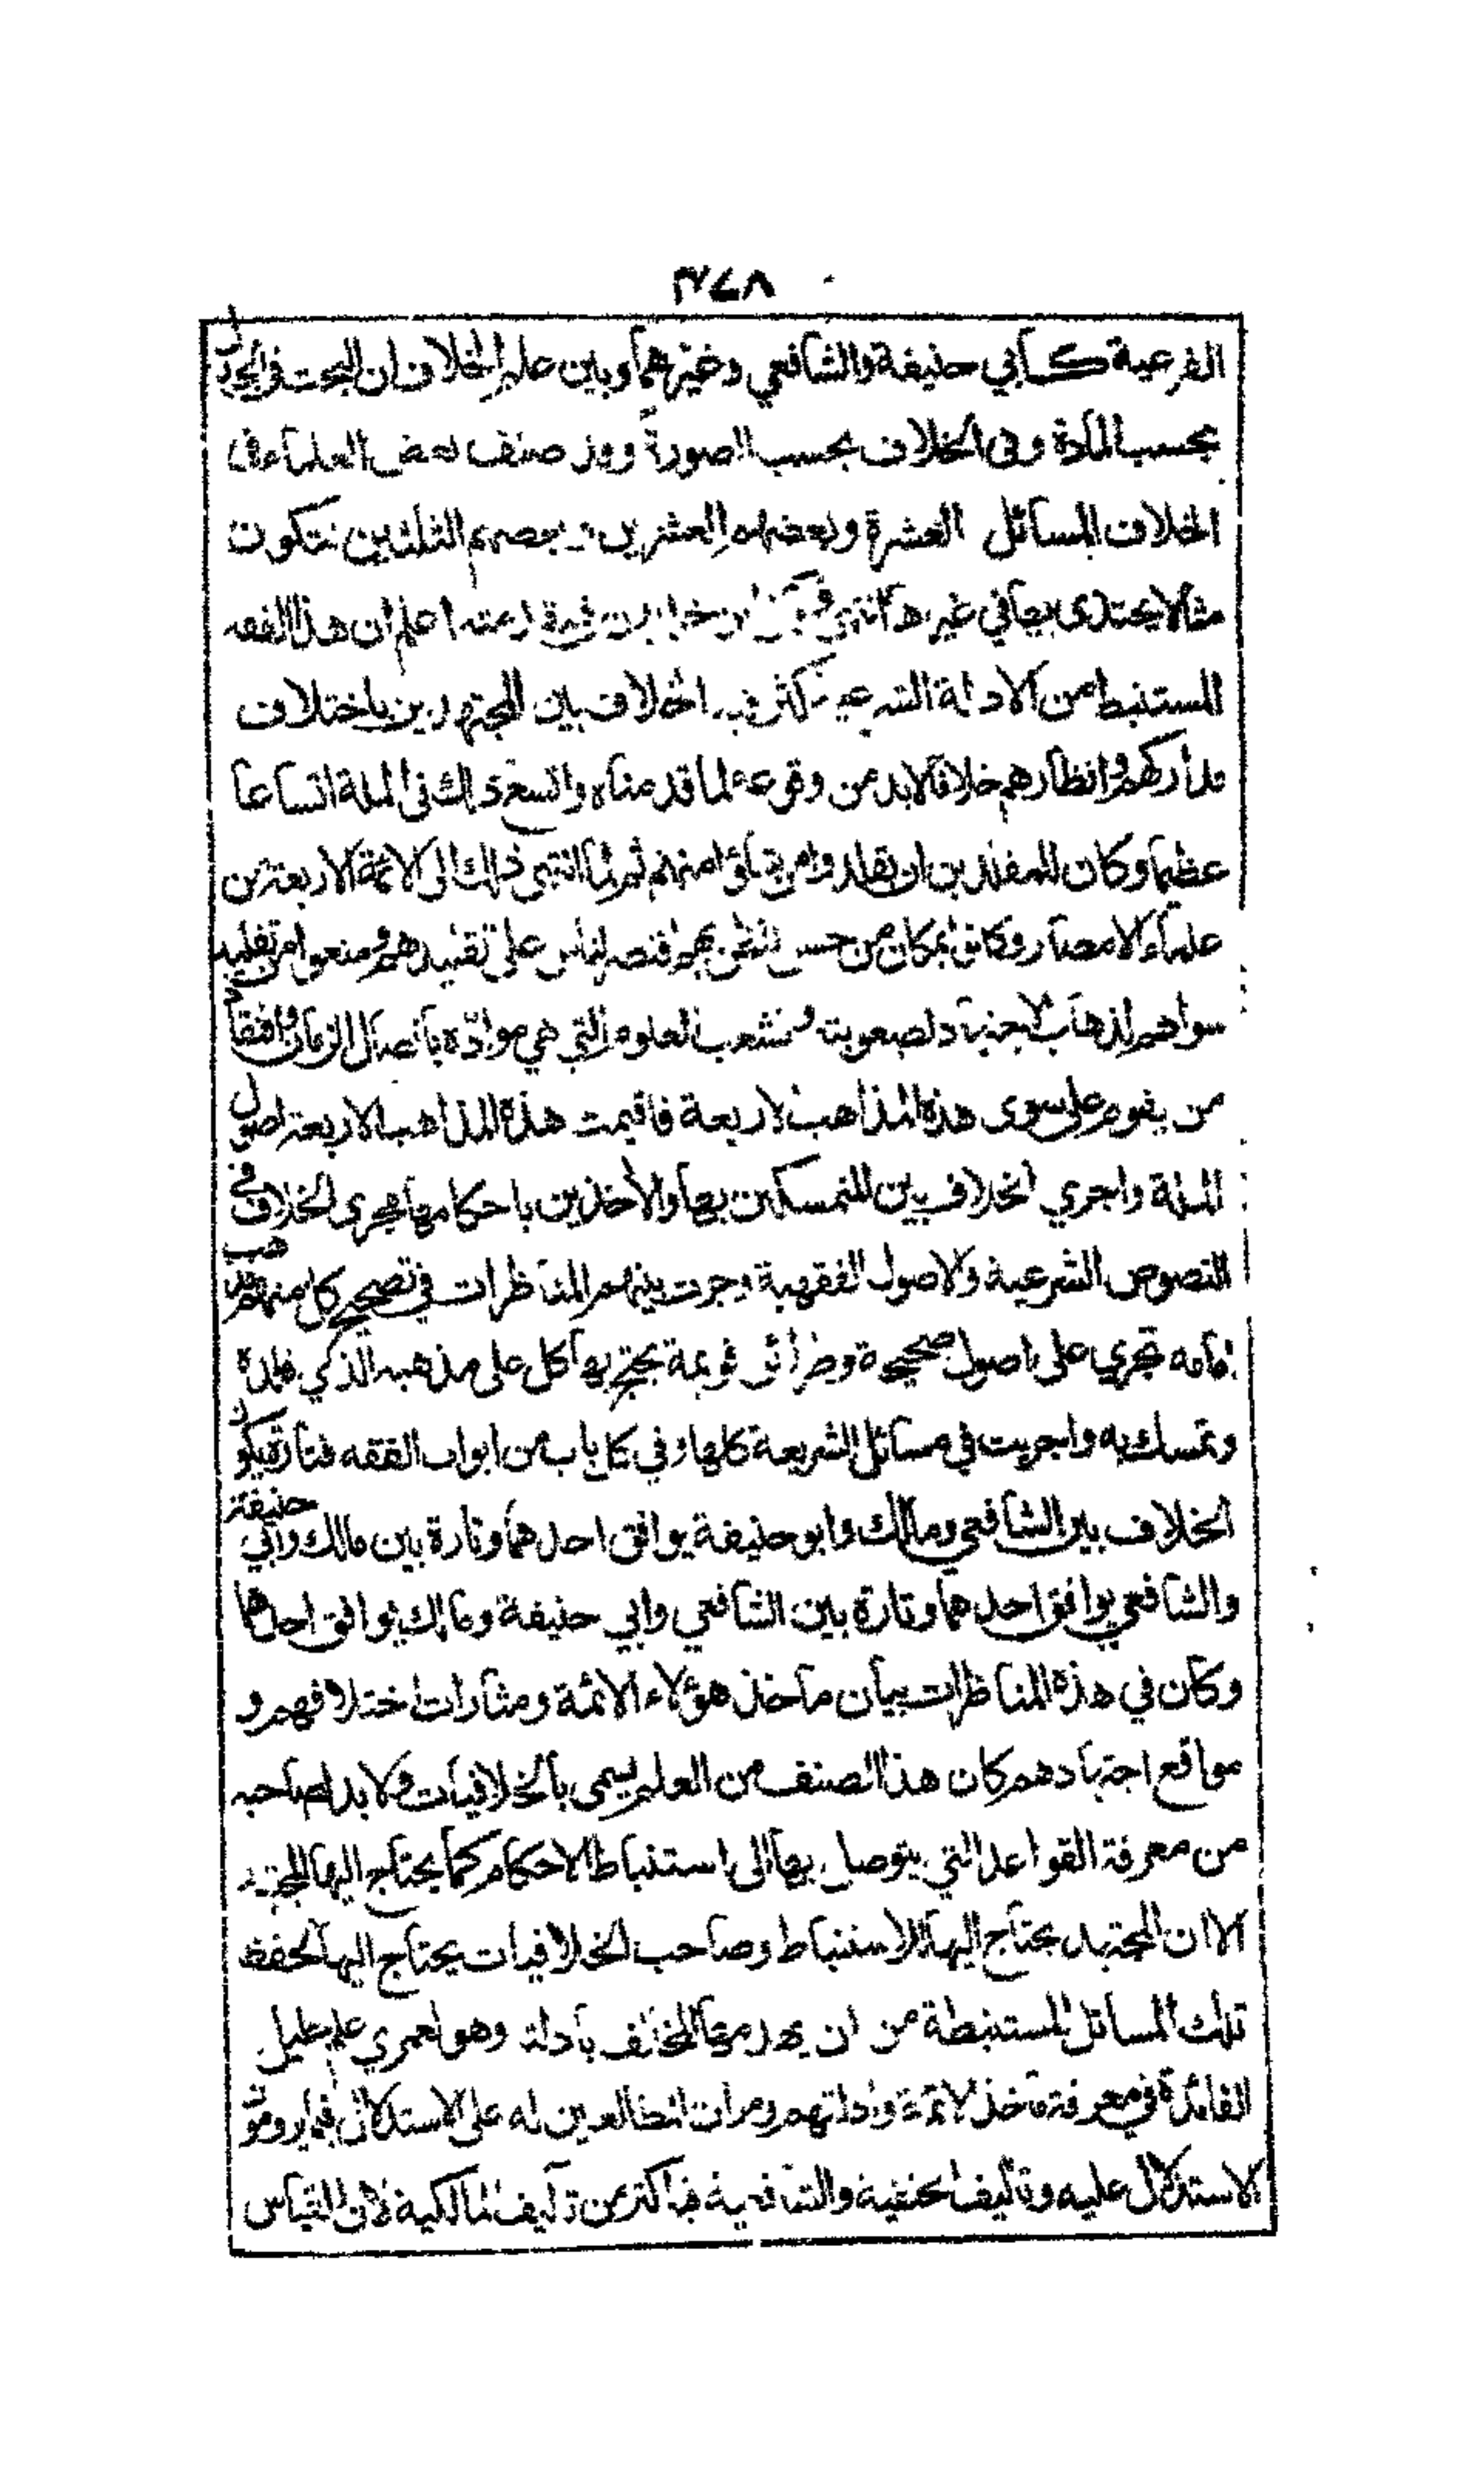 ٣٤٨
الفرعية كأبي حنيفة والشافعي وغيرهما وبين علم الخلاف ان البحث في الجدل
بحسب المادة وفى الخلاف بحسب الصورة وقد صنف بعض العلماء فى
الخلاف المسائل العشرة وبعضهم العشرين وبعضهم الثلثين لتكون
مثالا يحتذى بها في غيرها انتهى اعلم ان هذا الفقه
المستنبط من الادلة الشرعية كثر فيه الخلاف بين المجتهدين باختلاف
مداركهم وانظارهم خلافا لابد من وقوعه لما قدمناه واتسع ذلك فى الملة اتساعا
عظيما وكان للمقلدين ان يقلدوا من شاؤا منهم ثم لما انتهى ذلك الى الائمة الاربعة من
علماء الامصار وكانوا بمكان من حسن الظن بهم اقتصر الناس على تقليدهم ومنعوا من تقليد
سواهم لذهاب الاجتهاد لصعوبته وتشعب العلوم التي هي موادّه باتصال الزمان وافتقاد
من يقوم على سوى هذه المذاهب الاربعة فاقيمت هذه المذاهب الاربعة اصول
الملة واجري الخلاف بين المتمسكين بها والأخذين باحكامها مجرى الخلاف في
النصوص الشرعية والاصول الفقهية وجرت بينهم المناظرات في تصحيح كل منهم مذهب
امامه تجري على اصول صحيحة وطرائق قويمة يحتج بها كل على مذهبه الذي قلده
وتمسك به واجريت في مسائل الشريعة كلها وفي كل باب من ابواب الفقه فتارة يكون
الخلاف بين الشافعي ومالك وابو حنيفة يوافق احدهما وتارة بين مالك وابي حنيفة
والشافعي يوافق احدهما وتارة بين الشافعي وابي حنيفة ومالك يوافق احدهما
وكان في هذه المناظرات بيان مآخذ هؤلاء الائمة ومثارات اختلافهم و
مواقع اجتهادهم كان هذا الصنف من العلم يسمى بالخلافيات ولا بد لصاحبه
من معرفة القواعد التي يتوصل بها الى استنباط الاحكام كما يحتاج اليها المجتهد
الا ان المجتهد يحتاج اليها للاستنباط وصاحب الخلافيات يحتاج اليها لحفظ
تلك المسائل المستنبطة من ان يهدمها المخالف بأدلته وهو لعمري علم جليل
الفائدة في معرفة مآخذ الائمة وادلتهم ومران المطالعين له على الاستدلال فيما يرومون
الاستدلال عليه وتآليف الحنفية والشافعية فيه اكثر من تآليف المالكية لان القياس